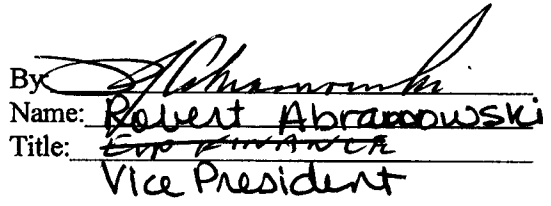 By
Name: Robert Abramowski
Title: EVP FINANCE
Vice President